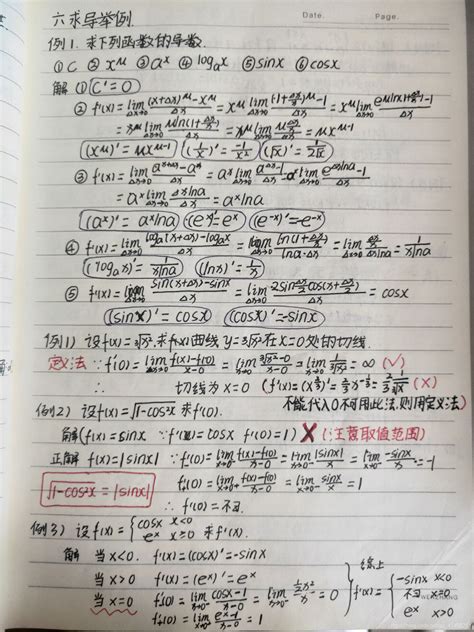 Date. Page.
六 求导举例.
例1. 求下列函数的导数.
① C ② x^μ ③ a^x ④ log_a x ⑤ sinx ⑥ cosx
解 ① C'=0
② f'(x)=lim_{Δx→0} ((x+Δx)^μ-x^μ)/Δx = x^μ lim_{Δx→0} ((1+Δx/x)^μ-1)/Δx = x^μ lim_{Δx→0} (e^{μln(1+Δx/x)}-1)/Δx
= x^μ lim_{Δx→0} μln(1+Δx/x)/Δx = x^μ lim_{Δx→0} (μ Δx/x)/Δx = μx^{μ-1}
(x^μ)'=μx^{μ-1} (1/x)'=-1/x² (√x)'=1/(2√x)
③ f'(x)=lim_{Δx→0} (a^{x+Δx}-a^x)/Δx = a^x lim_{Δx→0} (a^{Δx}-1)/Δx = a^x lim_{Δx→0} (e^{Δxlna}-1)/Δx
= a^x lim_{Δx→0} Δxlna/Δx = a^x lna
(a^x)'=a^x lna (e^x)'=e^x (e^{-x})'=-e^{-x}
④ f'(x)=lim_{Δx→0} (log_a(x+Δx)-log_a x)/Δx = lim_{Δx→0} ln(1+Δx/x)/(lna·Δx) = lim_{Δx→0} (Δx/x)/(Δxlna) = 1/(xlna)
(log_a x)'=1/(xlna) (lnx)'=1/x
⑤ f'(x)=lim_{Δx→0} (sin(x+Δx)-sinx)/Δx = lim_{Δx→0} 2sin(Δx/2)cos(x+Δx/2)/Δx = cosx
(sinx)'=cosx (cosx)'=-sinx
例1) 设f(x)=∛x², 求f(x)曲线 y=∛x² 在x=0处的切线.
定义法 ∵ f'(0)=lim_{x→0} (f(x)-f(0))/(x-0) = lim_{x→0} (∛x²-0)/(x-0) = lim_{x→0} 1/∛x = ∞ (√)
∴ 切线为x=0 (f'(x)=(x^{2/3})'=2/3 x^{-1/3}=2/3 1/∛x (×)
不能代入0不可用此法,则用定义法)
例2) 设f(x)=√(1-cos²x) 求f'(0).
解(f(x)=sinx ∵ f'(x)=cosx f'(0)=1) × (注意取值范围)
正解 f(x)=|sinx| ∵ f'₋(0)=lim_{x→0⁻} (f(x)-f(0))/(x-0) = lim_{x→0⁻} |sinx|/x = lim_{x→0⁻} -sinx/x = -1
√(1-cos²x)=|sinx| f'₊(0)=lim_{x→0⁺} (f(x)-f(0))/(x-0) = lim_{x→0⁺} sinx/x = 1
∴ f'(0)不∃.
例3) 设f(x)={cosx x<0 e^x x≥0 求f'(x).
解 当x<0. f'(x)=(cosx)'=-sinx
当x>0 f'(x)=(e^x)'=e^x
当x=0 f'₋(0)=lim_{x→0⁻} (cosx-1)/(x-0) = lim_{x→0⁻} (-1/2 x²)/x = 0
f'₊(0)=lim_{x→0⁺} (e^x-1)/(x-0) = 1
综上
f'(x)={-sinx x<0
不∃ x=0
e^x x>0